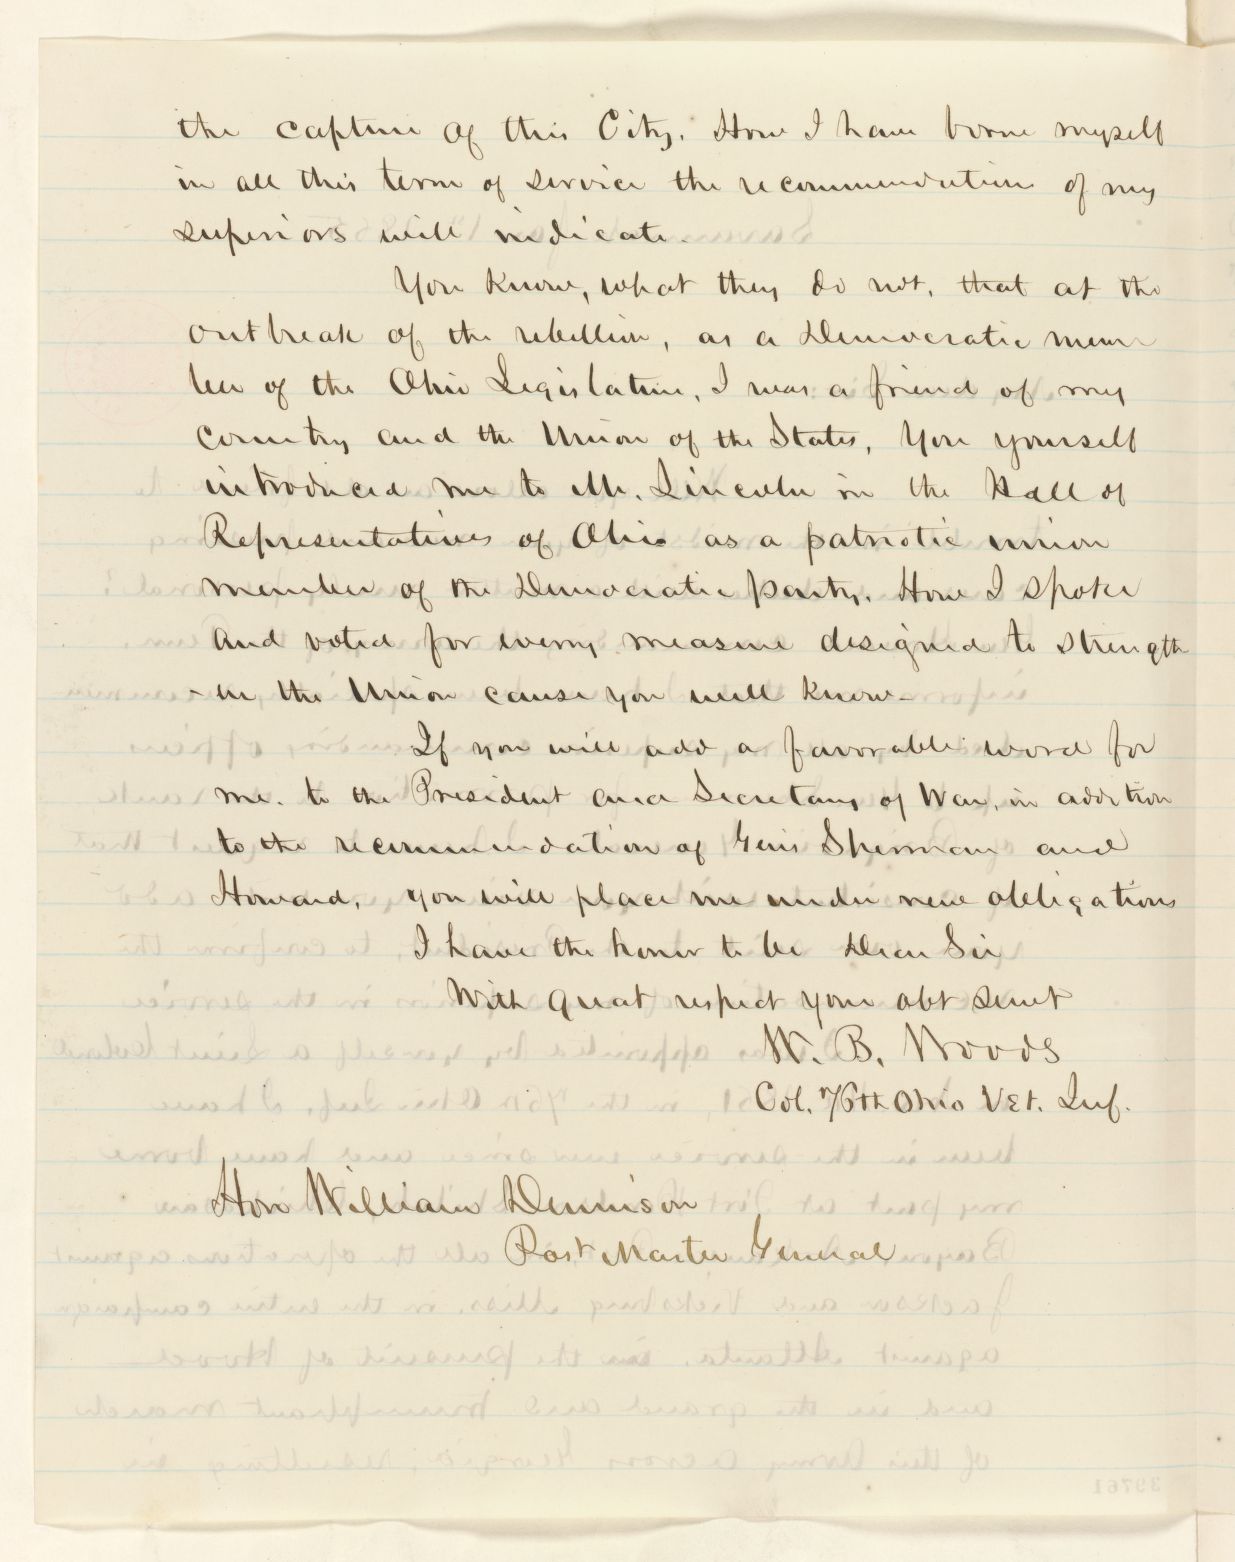 the capture of this City. How I have borne myself
in all this term of service the recommendation of my
superiors will indicate.
You know, what they do not, that at the
outbreak of the rebellion, as a Democratic mem-
ber of the Ohio Legislature, I was a friend of my
country and the Union of the States, You yourself
introduced me to Mr. Lincoln in the Hall of
Representatives of Ohio as a patriotic union
member of the Democratic party. How I spoke
and voted for every measure designed to strength
-en the Union cause you well know-
If you will add a favorable word for
me. to the President and Secretary of War, in addition
to the recommendation of Genls Sherman and
Howard, you will place me under new obligations
I have the honor to be Dear Sir
With great respect your obt servt
W. B. Woods
Col. 76th Ohio Vet. Inf.
Hon William Dennison
Post Master General
39761